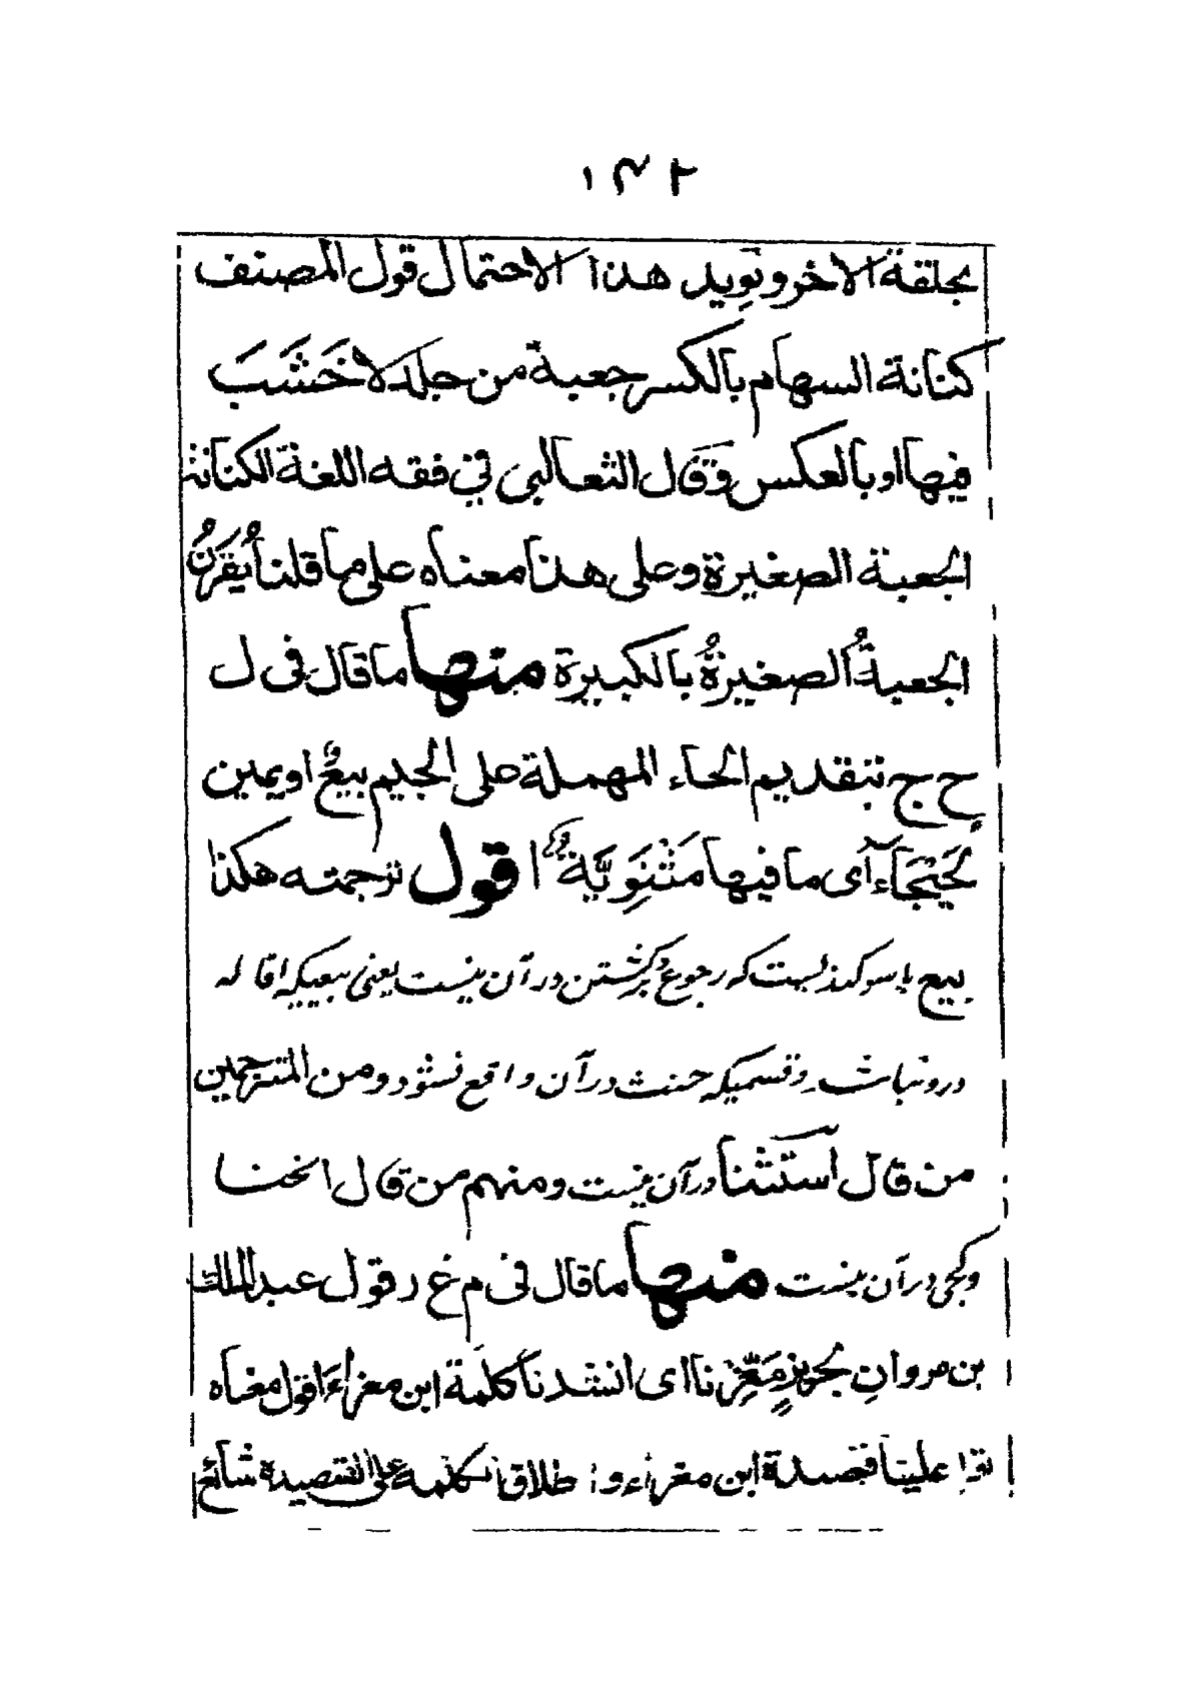 ١٣٢
بحلقة الاخر ويويد هذا الاحتمال قول المصنف
كنانة السهام بالكسر جعبة من جلد لا خَشَبَ
فيها او بالعكس وقال الثعالبي في فقه اللغة الكنانة
الجعبة الصغيرة وعلى هذا معناه على ما قلنا يُقرَنُ
الجعبةُ الصغيرةُ بالكبيرة منها ما قال في ل
ح ج بتقديم الحاء المهملة على الجيم بيعٌ او يمين
لَحْيَجَاء آى ما فيها مَثْنَوِيَّةٌ اقول ترجمته هكذا
بيع يا سوكنديست كه رجوع وبركشتن در آن نيست يعنى بيعيكه اقاله
درو نباشد وقسميكه حنث در آن واقع نشود ومن المترجمين
من قال آستثنا در آن نيست ومنهم من قال انحنا
وكجى در آن نيست منها ما قال فى م غ ر قول عبد الملك
بن مروانِ لجريرٍ مَغِّرْنا اى انشدنا كلمة ابن مغراءَ اقول معناه
اقرا علينا قصيدة ابن مغراء واطلاق الكلمة على القصيدة شائع